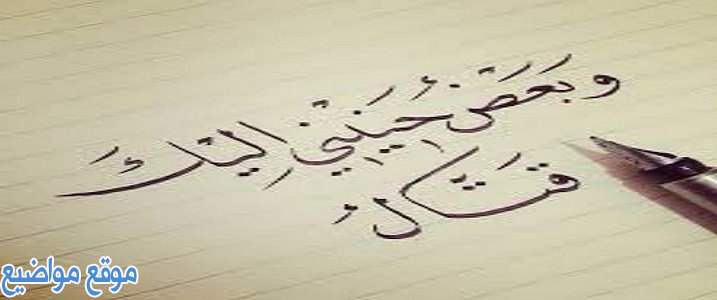 وَبَعَضْ حَنِينِي إِليْكَ
قَتَّالُ
موقع مواضيع